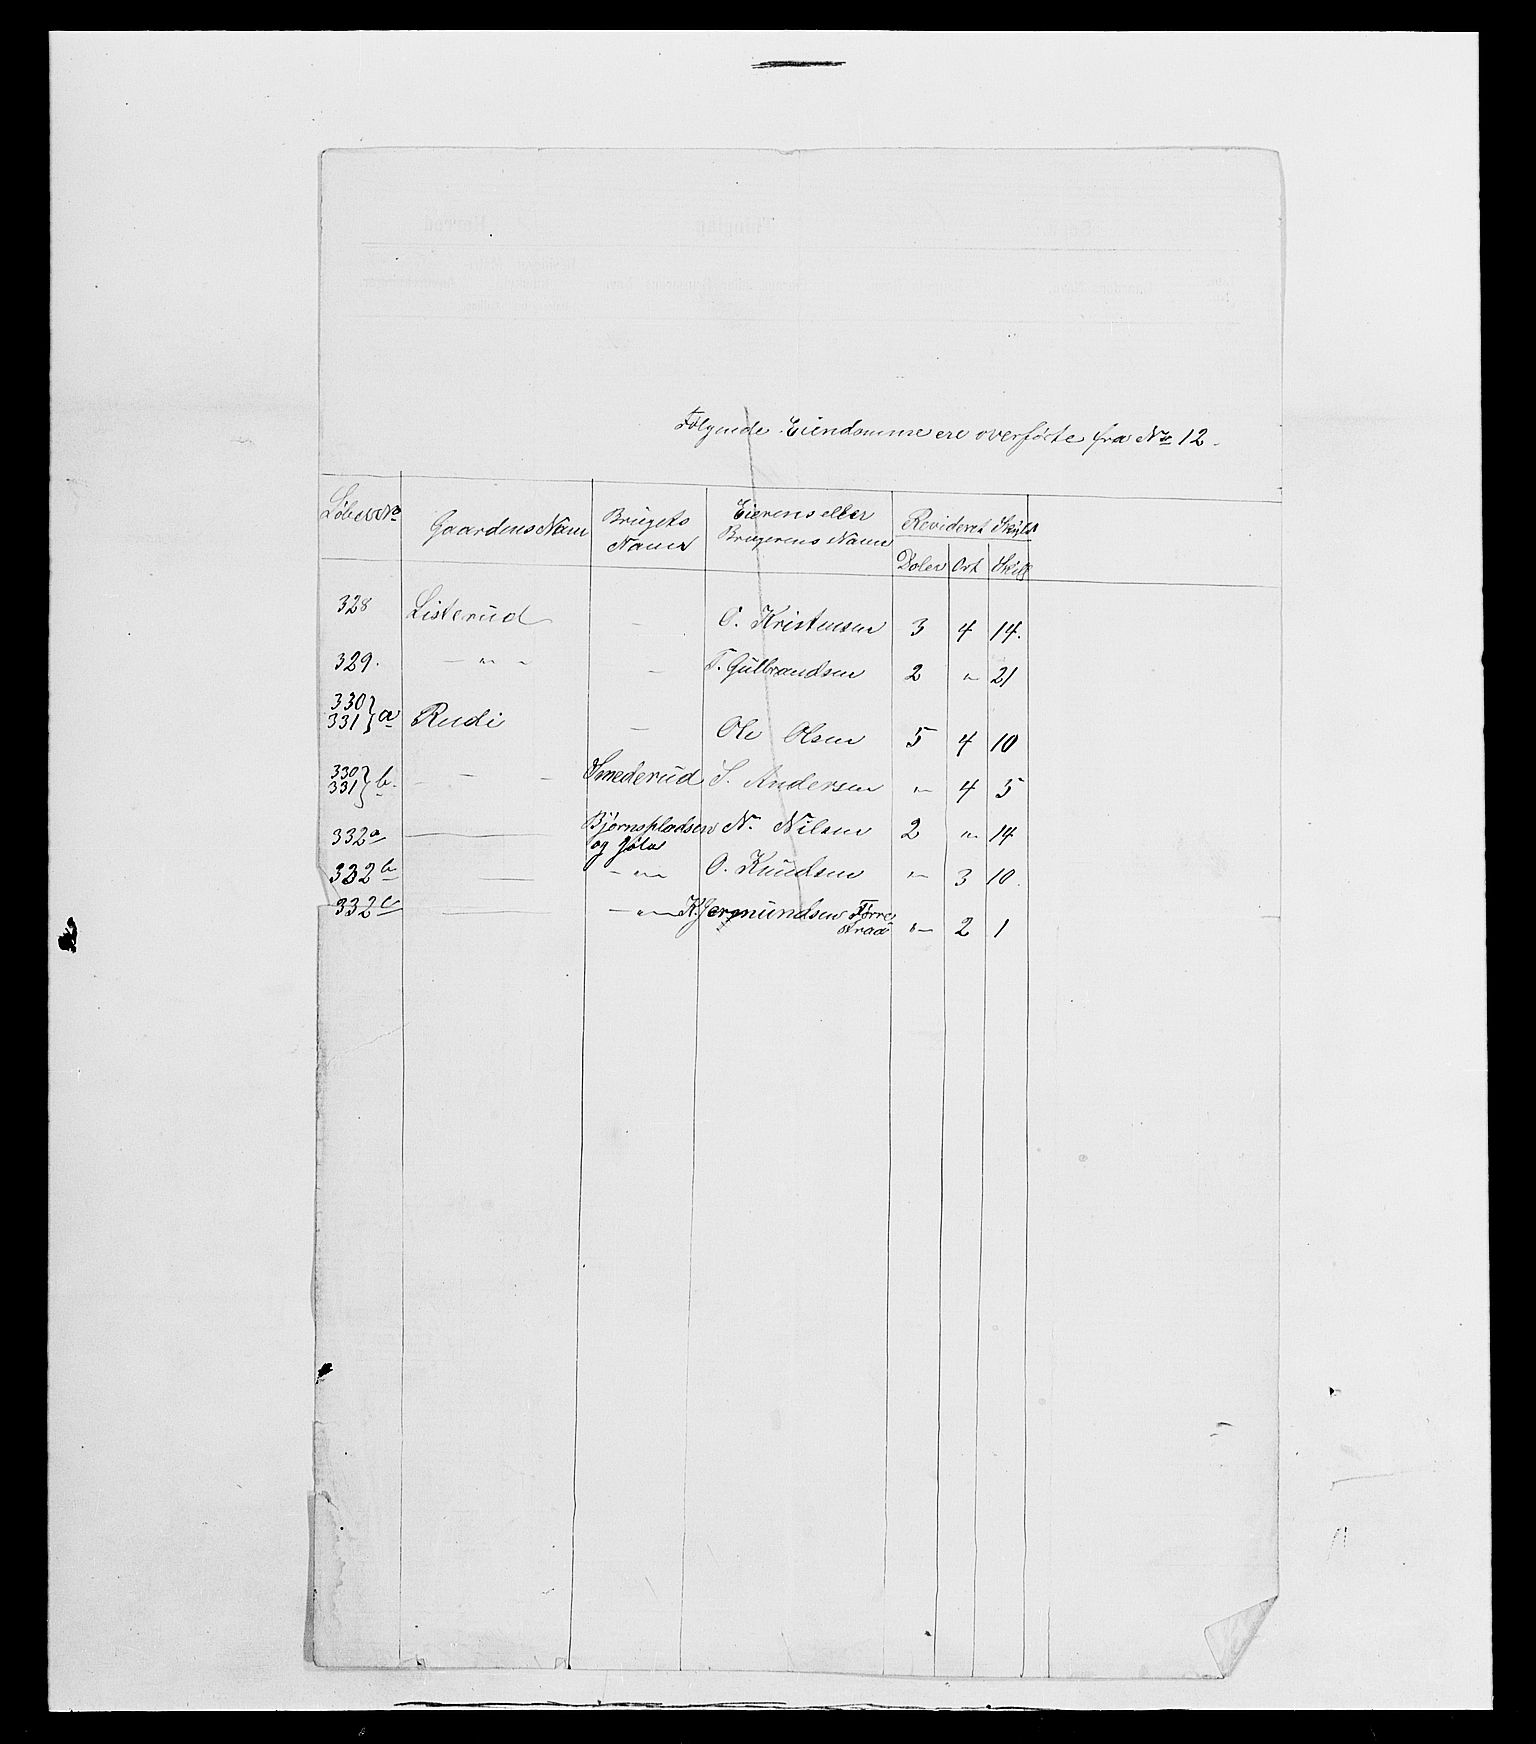 Følgende Eiendomme ere overførte fra No 12.
LøbeNo Gaardens Navn Brugets Navn Eierens eller Brugerens Navn Revideret Skyld
Daler Ort Skill
328 Listerud — O. Kristensen 3 4 14.
329. — „ — — T. Gulbrandsen 2 „ 21
330 331 } a Rudi — Ole Olsen 5 4 10
330 331 } b. — — — Smederud S. Andersen „ 4 5
332a — Bjørnspladsen og Jøla N. Nilsen 2 „ 14
332b — — „ — O. Knudsen „ 3 10.
332c — — „ — K. Jermundsen Tørre „ 2 1